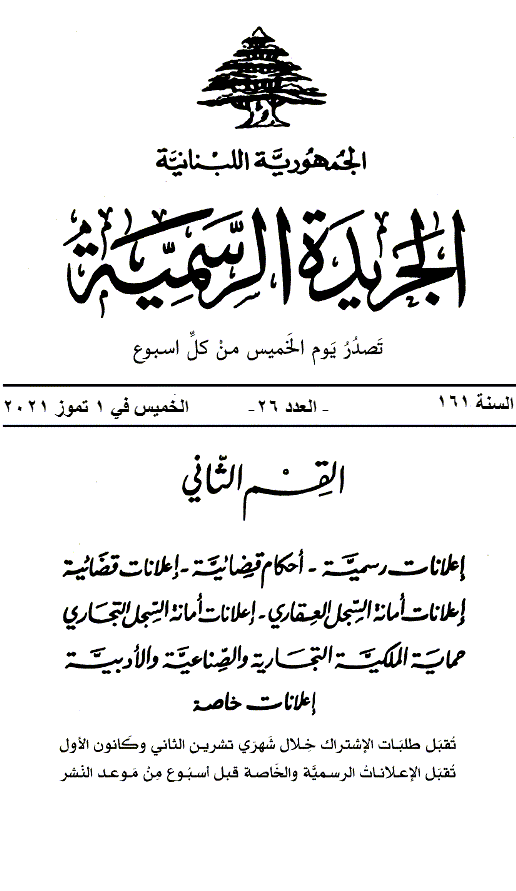 الجُمهُوريَّة اللبْنانيَّة
الجَريدَة الرسَّميَّة
تَصدُرُ يَوم الخَميس منْ كلِّ اسبوع
السنة ١٦١ - العدد ٢٦- الخميس في ١ تموز ٢٠٢١
القِسْم الثّاني
إعلانات رسميَّة - أحكام قضائيَّة - إعلانات قضائية
إعلانات أمانة السِّجل العقاري - إعلانات أمانة السِّجل التجاري
حماية الملكيَّة التجارية والصِّناعيَّة والأدبيَّة
إعلانات خاصة
تُقبَل طلبَات الإشتراك خِلال شَهرَي تشرين الثاني وكَانون الأول
تُقبَل الإعلاناتُ الرسميَّة والخَاصة قبل أسبُوع مِنْ مَوعد النَشر